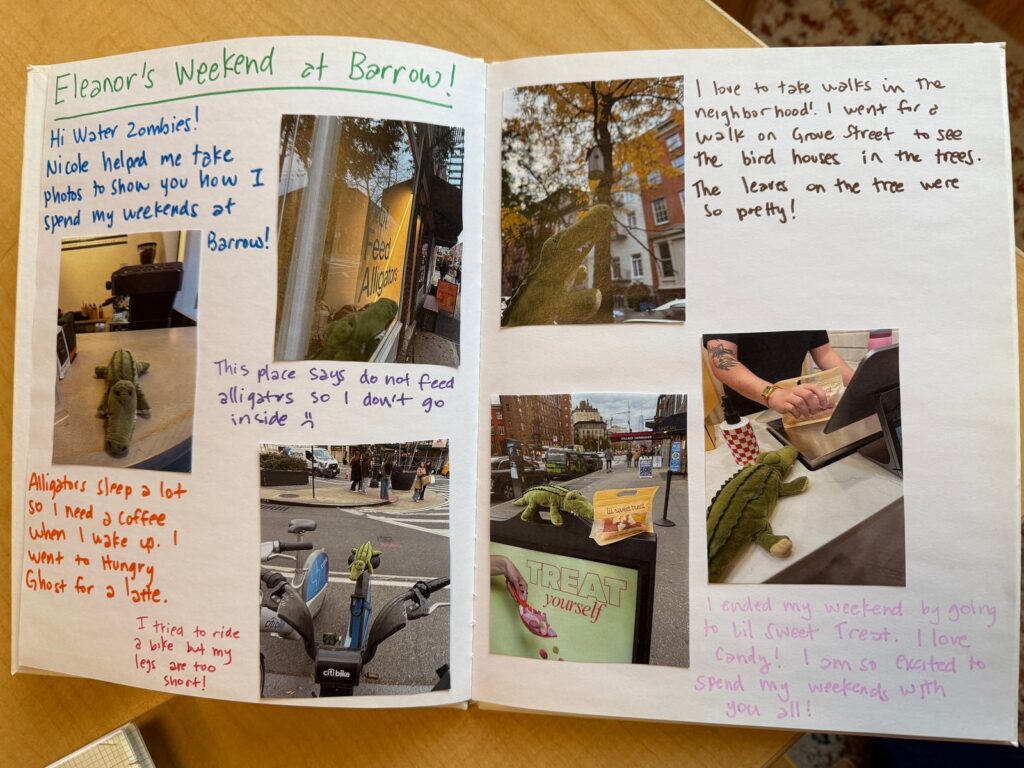 Eleanor's Weekend at Barrow!
Hi Water Zombies!
Nicole helped me take
photos to show you how I
spend my weekends at
Barrow!
Not
Feed
Alligators
This place says do not feed
alligators so I don't go
inside
Alligators sleep a lot
so I need a coffee
when I wake up. I
went to Hungry
Ghost for a latte.
I tried to ride
a bike but my
legs are too
short!
citibike
I love to take walks in the
neighborhood! I went for a
walk on Grove Street to see
the bird houses in the trees.
The leaves on the tree were
so pretty!
lil sweet treat
TREAT
yourself
I ended my weekend by going
to Lil Sweet Treat. I love
candy! I am so excited to
spend my weekends with
you all!